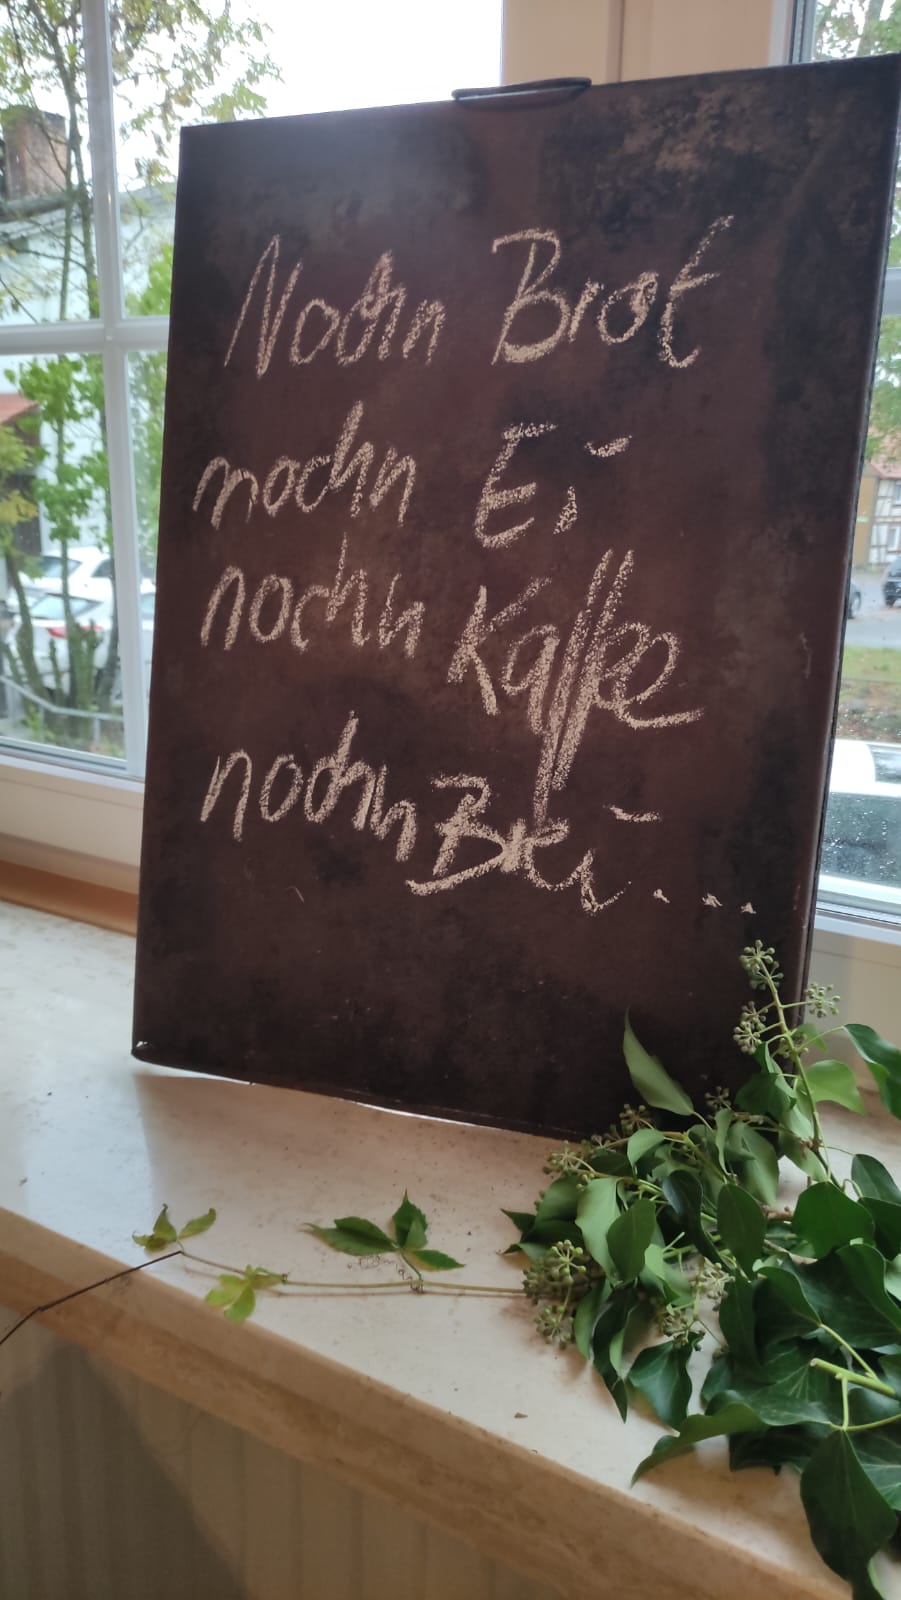 Nochn Brot
nochn Ei
nochn Kaffee
nochn Brei...